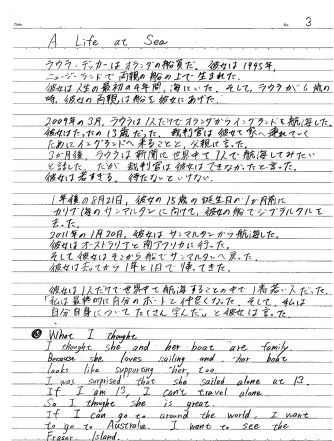 Date
No. 3
A Life at Sea
ラウラ・デッカーはオランダの船員だ。彼女は1995年、
ニュージーランドで両親の船の上で生まれた。
彼女は人生の最初の4年間、海にいた。そして、ラウラが6歳の
時、彼女の両親は船を彼女にあげた。
2009年の3月、ラウラは1人だけでオランダからイングランドへ航海した。
彼女はたったの13歳だった。裁判官は彼女を家へ連れていく
ためにイングランドへ来ることと、父親に言った。
3か月後、ラウラは新聞に世界中を1人で航海してみたい
と話した。だが、裁判官は彼女はできなかったと言った。
彼女は若すぎる。待たないといけない。
1年後の8月21日、彼女の15歳の誕生日の1か月前に
カリブ海のサンマルタンに向けて、彼女の船でジブラルタルを
去った。
2011年の1月20日、彼女はサンマルタンから航海した。
彼女はオーストラリアと南アフリカに行った。
そして彼女はそこから船でサンマルタンへ戻った。
彼女は去ってから1年と1日で帰ってきた。
彼女は1人だけで世界中を航海することの中で1番若い人だった。
「私は最終的に自分のボートと仲良くなった。そして、私は
自分自身についてたくさん学んだ。」と彼女は言った。
What I thought
I thought she and her boat are family.
Because she loves sailing and her boat
looks like supporting her, too.
I was surprised that she sailed alone at 13.
If I am 13, I can't travel alone.
So I thought she is great.
If I can go to around the world, I want
to go to Australia. I want to see the
Fraser Island.